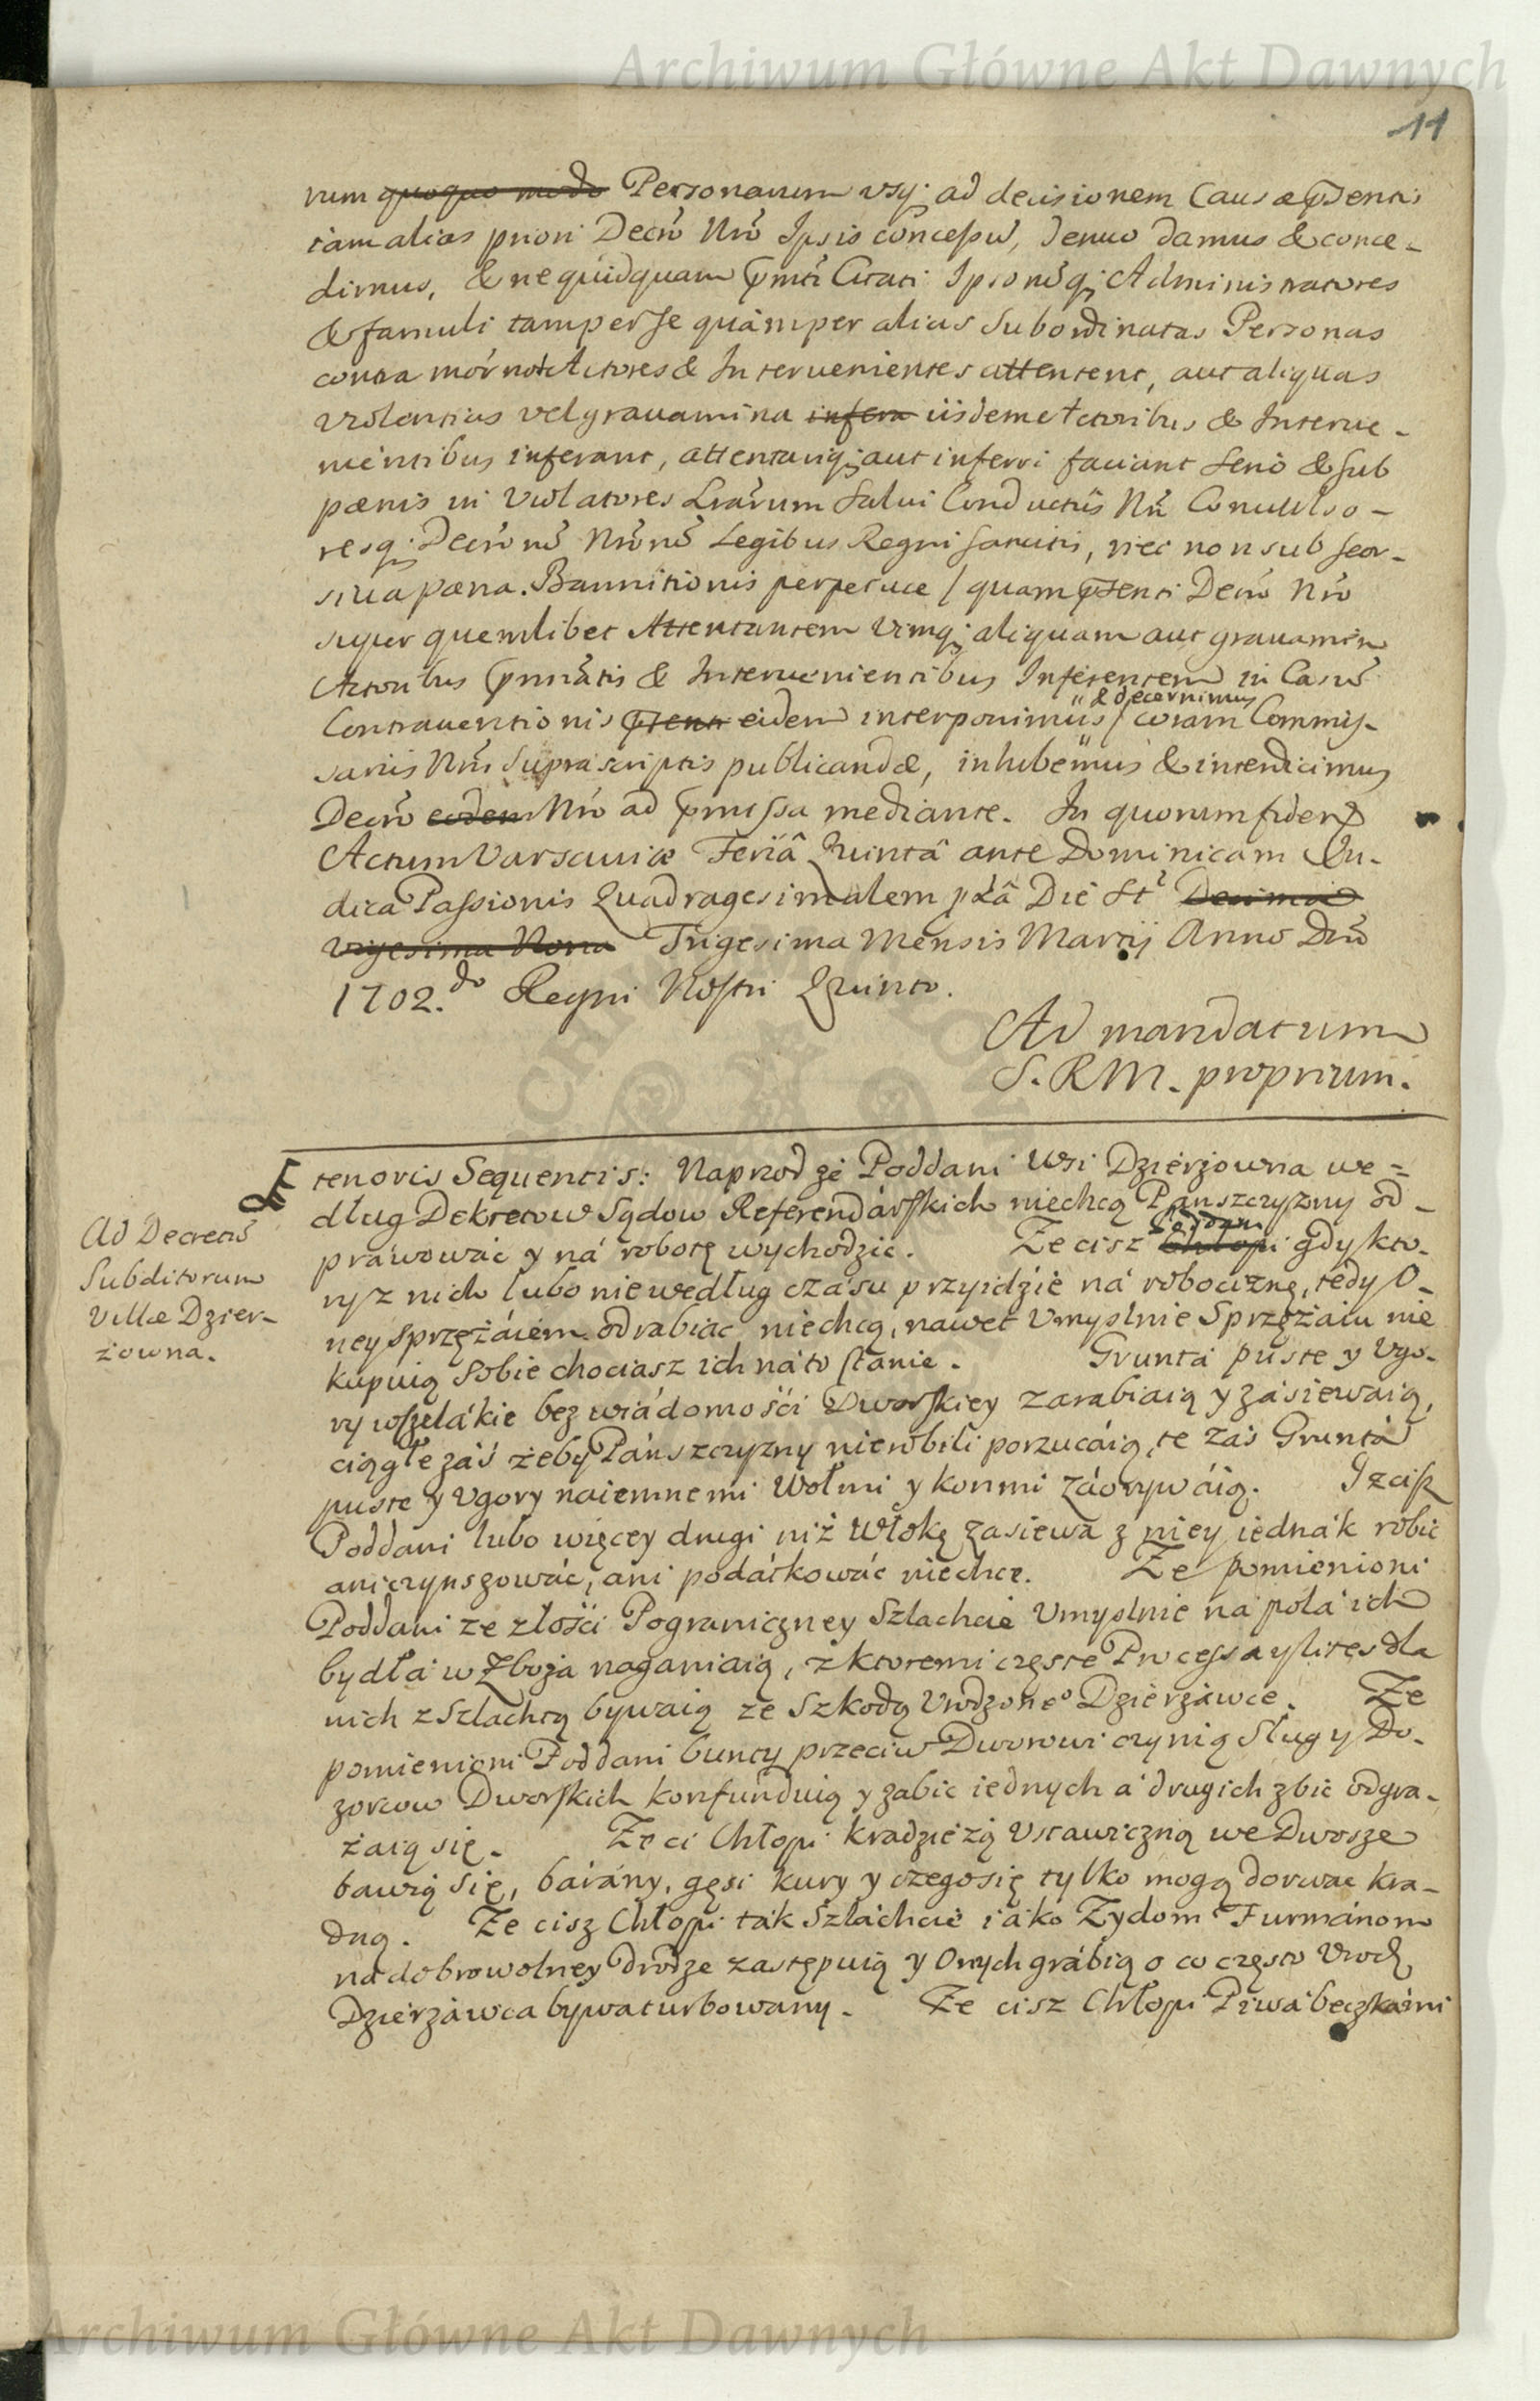 Archiwum Główne Akt Dawnych
11
rum quoquo modo Personarum usq; ad decisionem Causæ pntis
iam alias priori Decrō Nrō Ipsis concessū, denuo damus & conce-
dimus, & ne quidquam pmti Citati Ipsorūq; Administratores
& famuli tam per se quàm per alias Subordinatas Personas
contra Actores & Intervenientes attentent, aut aliquas
violentias vel gravamina infera iisdem Actoribus & Interve-
nientibus inferant, attentariq; aut inferri faciant serio & sub
pænis in Violatores Lrārum Salvi Conductûs Nri Convulso-
resq; Decrorū Nrorū Legibus Regni sancitis, nec non sub seor-
siva pæna Bannitionis perpetuæ / quam pnti Decrō Nrō
super quemlibet Attentantem vimq; aliquam aut gravamen
Actoribus pmissis & Intervenientibus Inferentem in Casū
& decernimus
Contraventionis pnti eidem interponimus / coram Commis-
sariis Nris Suprascriptis publicandæ, inhibemus & interdicimus
Decrō eodem Nrō ad pmissa mediante. In quorum fidem
Actum Varsaviæ Feriâ Quintâ ante Dominicam Ju-
dica Passionis Quadragesimalem pxâ Die St Decima
vigesima Nona Trigesima Mensis Martij Anno Dnī
1702.do Regni Nostri Quinto.
Ad mandatum
S. R M. proprium.
Ad Decretū
Subditorum
Villæ Dzier-
żowna.
tenoris Sequentis: Naprzod że Poddani Wsi Dzierżowna we=
dług Dekretow Sądow Referendárskich niechcą Pańszczyzny od-
prawować y ná robotę wychodzić. Ze cisz Chłopi gdy kto-
Poddani
ry z nich lubo nie według czásu przyidzie ná robociznę, tedy O-
ney sprzężáiem odrabiac niechcą, nawet Vmyslnie Sprzężaiu nie
kupuią Sobie chociasz ich náto stanie. Grunta puste y Vgo-
ry wszelákie bez wiádomości Dworskiey zarabiaią y zásiewaią,
ciągłe záś żeby Pańszczyzny nierobili porzucáią, te záś Grunta
puste y Vgory naiemnemi Wołmi y konmi záorywáią. Iż cisz
Poddani lubo więcey drugi niż Włokę zasiewa z niey iednák robić
ani czynszowáć, ani podátkowáć niechce. Ze pomienioni
Poddani ze złości Pograniczney Szlachcie Vmyslnie na pola ich
bydłá w Zboża naganiaią, z ktoremi częste Processa y lites dla
nich z Szlachtą bywaią ze Szkodą Vrodzone° Dzierżáwce. Ze
pomienioni Poddani bunty przeciw Dworowi czynią Sług y Do-
zorcow Dworskich konfunduią y zabic iednych á drugich zbić odgra-
żaią się. Ze ci Chłopi kradzieżą Vstawiczną we Dworze
bawią się, bárány, gęsi kury y czegosię tylko mogą dorwać kra-
dną. Ze cisz Chłopi ták Szláchcie iáko Zydom Furmánom
na dobrowolney drodze zastępuią y Onych grábią o co często Vrodz
Dzierżáwca bywa turbowany. Ze cisz Chłopi Piwá beczkámi
Archiwum Główne Akt Dawnych